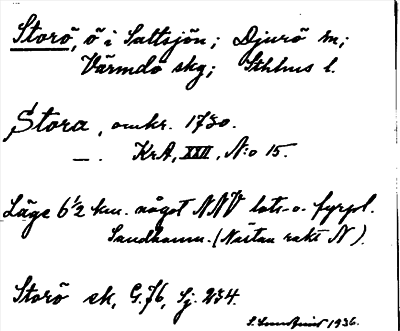 Storö, ö i Saltsjön; Djurö sn;
Värmdö skg; Sthlms l.
Stora, omkr. 1730.
—. KrA, XXII, N:o 15.
Läge 6½ km. något NNV lots- o. fyrpl.
Sandhamn. (Nästan rakt N).
Storö sk, G. 76, Sj. 234.
1936.